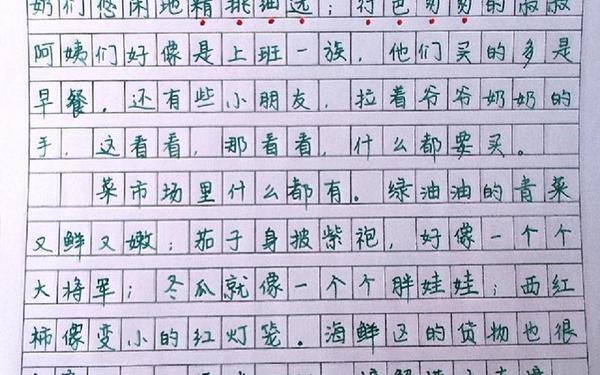 奶们悠闲地精挑细选；行色匆匆的叔叔
阿姨们好像是上班一族，他们买的多是
早餐，还有些小朋友，拉着爷爷奶奶的
手，这看看，那看看，什么都要买。
菜市场里什么都有。绿油油的青菜
又鲜又嫩；茄子身披紫袍，好像一个个
大将军；冬瓜就像一个个胖娃娃；西红
柿像变小的红灯笼。海鲜区的货物也很